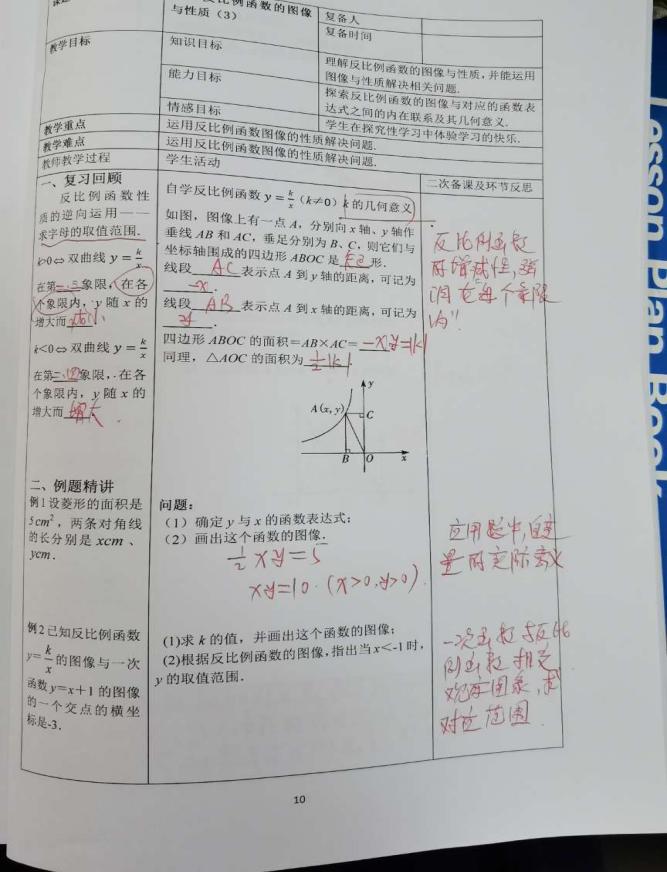 反比例函数的图像
与性质（3）
复备人
复备时间
教学目标
知识目标
理解反比例函数的图像与性质，并能运用
图像与性质解决相关问题.
能力目标
探索反比例函数的图像与对应的函数表
达式之间的内在联系及其几何意义.
情感目标
学生在探究性学习中体验学习的快乐.
教学重点
运用反比例函数图像的性质解决问题.
教学难点
运用反比例函数图像的性质解决问题.
教师教学过程
学生活动
二次备课及环节反思
一、复习回顾
反比例函数性
质的逆向运用——
求字母的取值范围.
k>0⇔双曲线 y=k/x
在第一.三象限，在各
个象限内，y 随 x 的
增大而减小
k<0⇔双曲线 y=k/x
在第二.四象限，在各
个象限内，y 随 x 的
增大而增大.
自学反比例函数 y=k/x（k≠0）k 的几何意义
如图，图像上有一点 A，分别向 x 轴、y 轴作
垂线 AB 和 AC，垂足分别为 B、C，则它们与
坐标轴围成的四边形 ABOC 是矩形.
线段 AC 表示点 A 到 y 轴的距离，可记为
-x.
线段 AB 表示点 A 到 x 轴的距离，可记为
y.
四边形 ABOC 的面积=AB×AC=-xy=|k|
同理，△AOC 的面积为 1/2|k|
y
A(x, y)
C
B
O
x
反比例函数
的增减性，强
调"在每个象限
内"
二、例题精讲
例1 设菱形的面积是
5cm²，两条对角线
的长分别是 xcm 、
ycm.
问题：
（1）确定 y 与 x 的函数表达式；
（2）画出这个函数的图像.
1/2 xy=5
xy=10.（x>0,y>0）
应用题中，自变
量的实际意义
例2 已知反比例函数
y=k/x的图像与一次
函数 y=x+1 的图像
的一个交点的横坐
标是-3.
(1)求 k 的值，并画出这个函数的图像；
(2)根据反比例函数的图像，指出当 x<-1 时，
y 的取值范围.
一次函数与反比
例函数相交
观察图象，求
对应范围
10
Lesson Plan Book